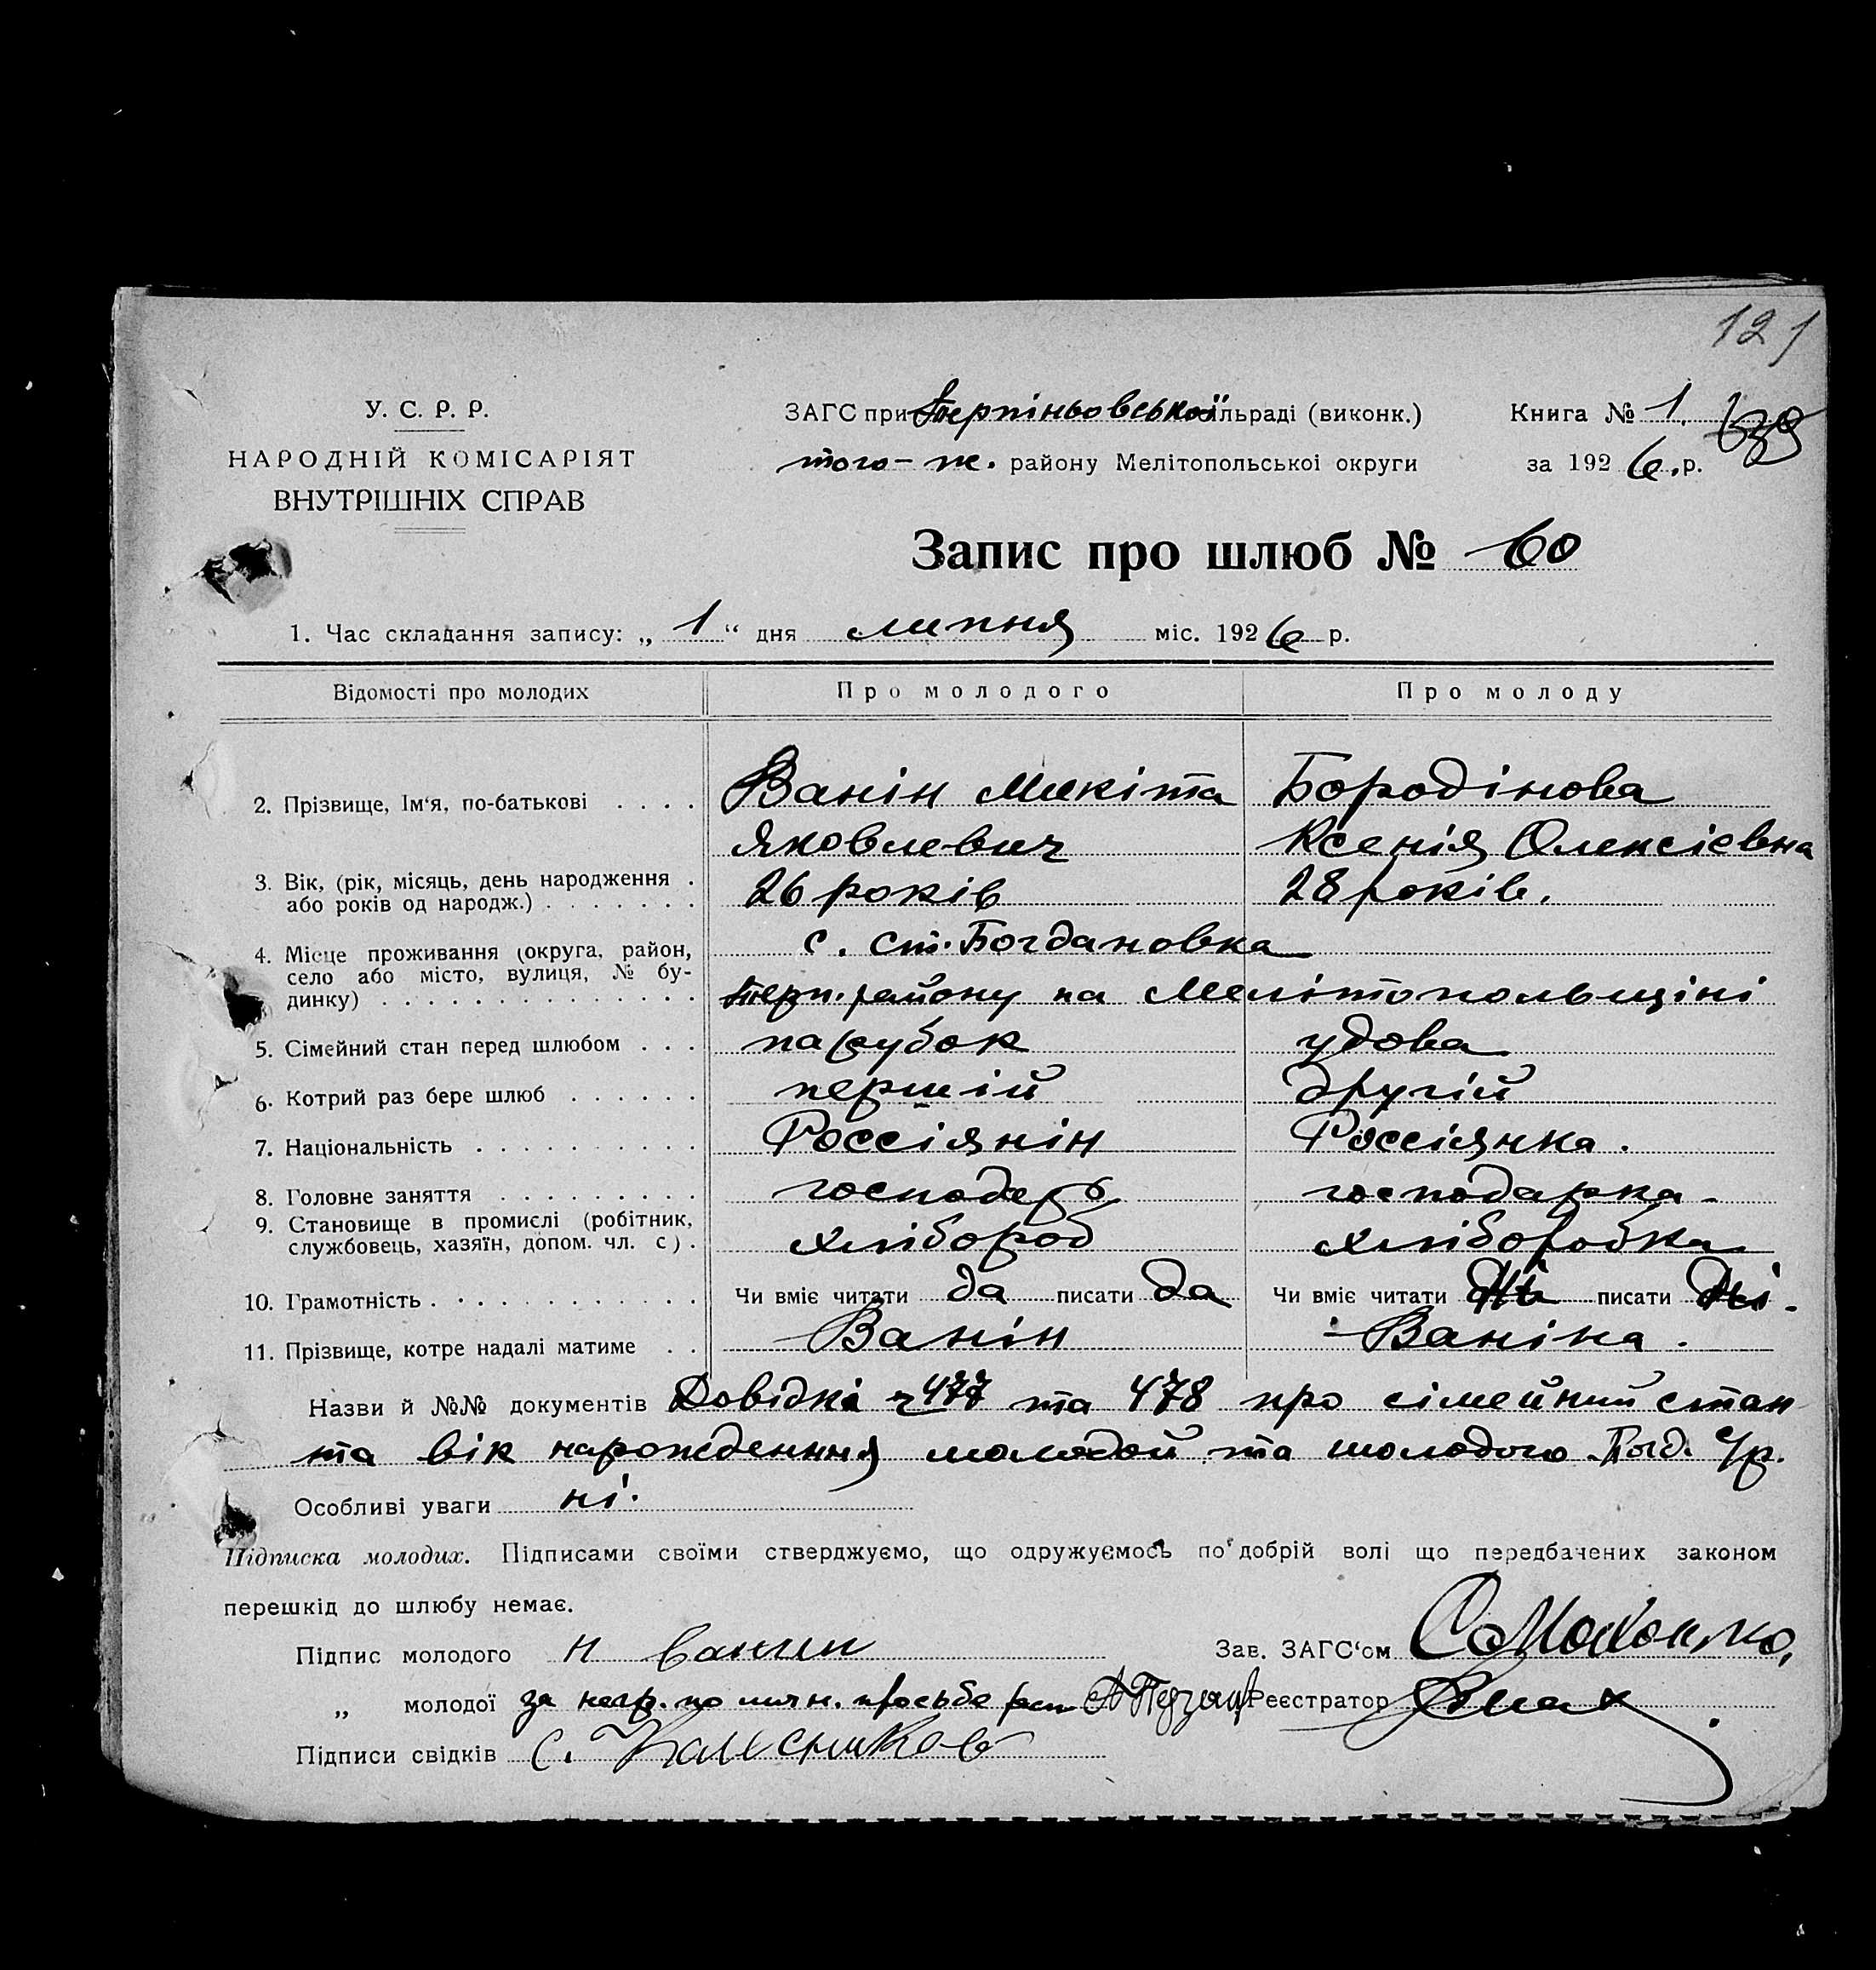 121
У. С. Р. Р.
НАРОДНІЙ КОМІСАРІЯТ
ВНУТРІШНІХ СПРАВ
ЗАГС при Терпіньовської сільраді (виконк.)
того-же. району Мелітопольської округи
Книга № 1.
за 1926.р.
Запис про шлюб № 60
1. Час складання запису: „ 1 “ дня липня міс. 1926 р.
Відомості про молодих Про молодого Про молоду
2. Прізвище, Ім‘я, по-батькові . . . . Ванін Микіта Бородінова
Яковлевич Ксенія Олексієвна
3. Вік, (рік, місяць, день народження .
або років од народж.) . . . . . . . 26 років 28 років.
4. Місце проживання (округа, район, с. ст. Богдановка
село або місто, вулиця, № бу-
динку) . . . . . . . . . . . . . . Терп. району на Мелітопольщіні
5. Сімейний стан перед шлюбом . . . парубок удова
6. Котрий раз бере шлюб . . . . . . першій другій
7. Національність . . . . . . . . . . Россіянін Россіянка.
8. Головне заняття . . . . . . . . . господарь господарка.
9. Становище в промислі (робітник,
службовець, хазяїн, допом. чл. с). хлібороб хлаборобка
10. Грамотність . . . . . . . . . . . . Чи вміє читати да писати да Чи вміє читати ні писати ні.
11. Прізвище, котре надалі матиме . . Ванін Ваніна.
Назви й №№ документів Довідкі ч 477 та 478 про сімейний стан
та вік нарождення молодой та молодого Богд. с/р.
Особливі уваги ні.
Підписка молодих. Підписами своїми стверджуємо, що одружуємось по добрій волі що передбачених законом
перешкід до шлюбу немає.
Підпис молодого Н Ванин Зав. ЗАГС‘ом
„ молодої за негр. по личн. просьбе рас Реєстратор
Підписи свідків С.